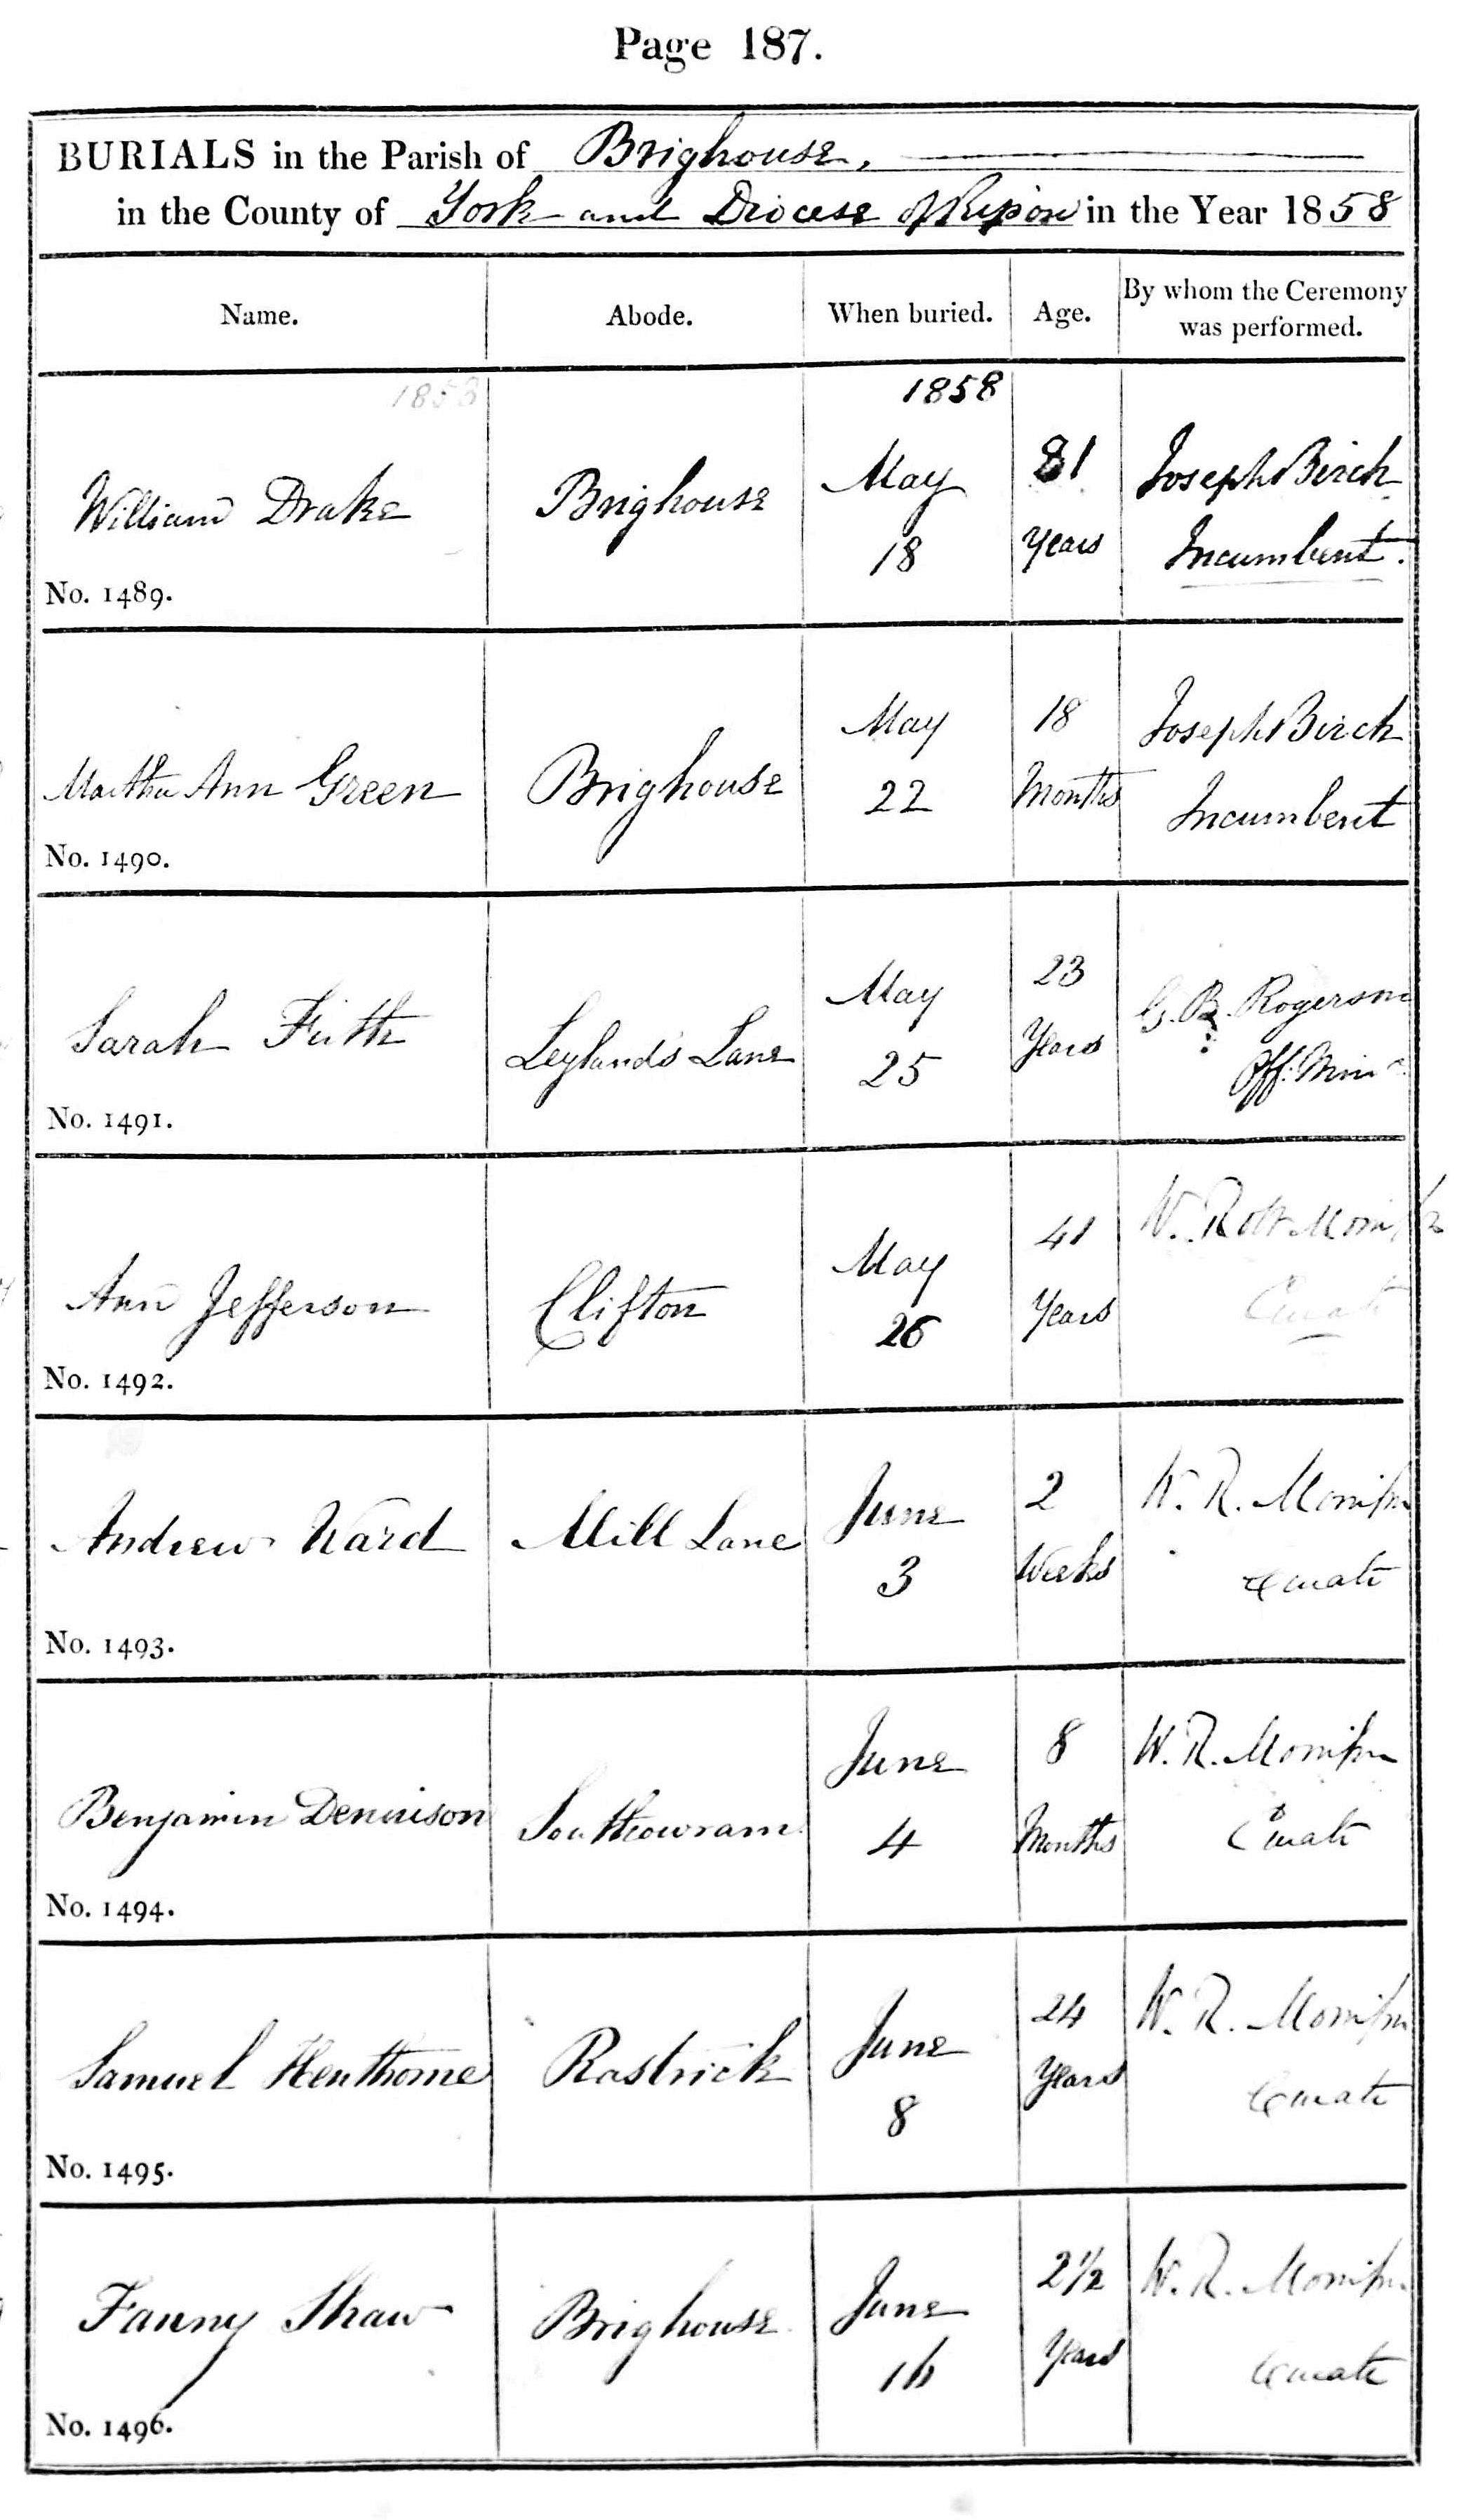 Page 187.
BURIALS in the Parish of Brighouse,
in the County of York and Diocese of Ripon in the Year 1858
Name.
Abode.
When buried.
Age.
By whom the Ceremony
was performed.
1858
1858
William Drake
No. 1489.
Brighouse
May
18
81
Years
Joseph Birch
Incumbent.
Martha Ann Green
No. 1490.
Brighouse
May
22
18
Months
Joseph Birch
Incumbent
Sarah Firth
No. 1491.
Leylands Lane
May
25
23
Years
G. B. Rogerson
Off. Min
Ann Jefferson
No. 1492.
Clifton
May
26
41
Years
W.
Curate
Andrew Ward
No. 1493.
Mill Lane
June
3
2
Weeks
W. R.
Curate
Benjamin Dennison
No. 1494.
Southowram
June
4
8
Months
W. R.
Curate
Samuel Henthorne
No. 1495.
Rastrick
June
8
24
Years
W. R.
Curate
Fanny Shaw
No. 1496.
Brighouse
June
16
2½
Years
W. R.
Curate